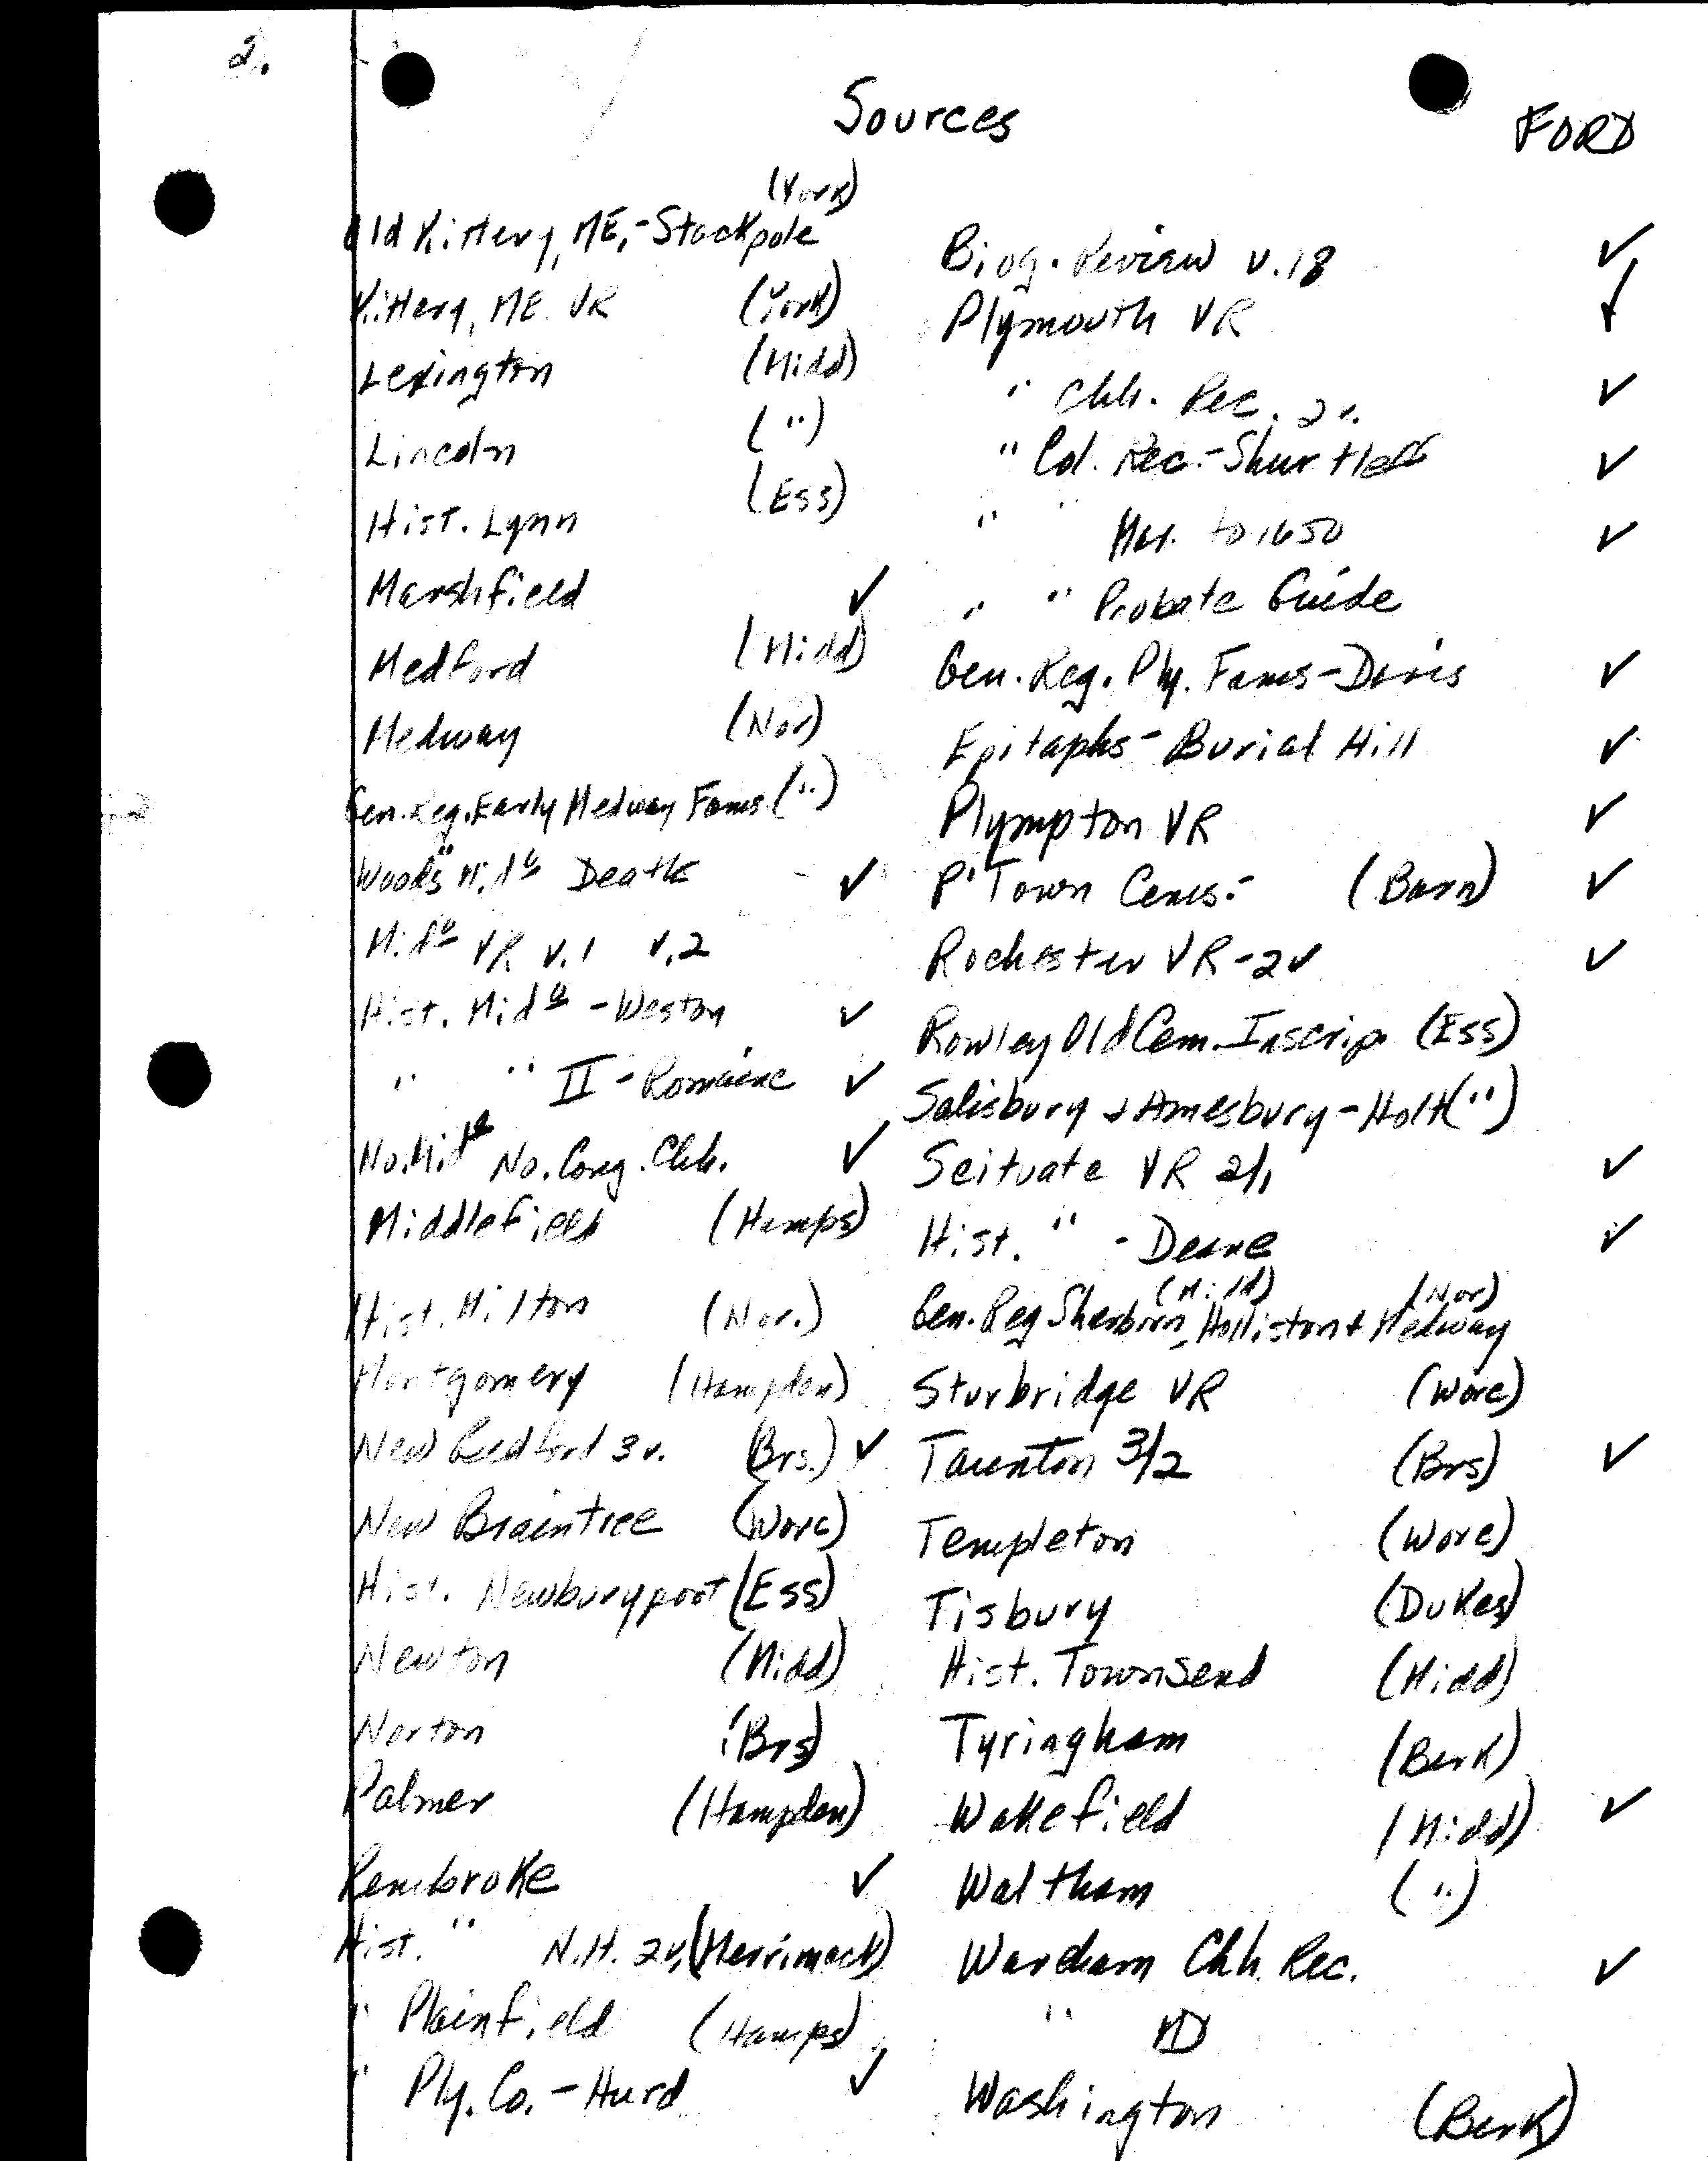 2.
Sources
FORD
(York)
Old Kittery, ME, - Stackpole
Kittery, ME. VR (York)
Lexington (Midd)
Lincoln (")
Hist. Lynn (Ess)
Marshfield ✓
Medford (Midd)
Medway (Nor)
Gen. Reg. Early Medway Fams (")
Wood's Midᵒ Death ✓
Midᵒ VR v.1 v.2
Hist. Midᵒ - Weston ✓
" " II - Romaine ✓
No. Midᵒ No. Cong. Chh. ✓
Middlefield (Hamps)
Hist. Milton (Nor.)
Montgomery (Hampden)
New Bedford 3v. (Brs.) ✓
New Braintree (Worc)
Hist. Newburyport (Ess)
Newton (Midd)
Norton (Brs)
Palmer (Hampden)
Pembroke ✓
Hist. " N.H. 2v. (Merrimack)
" Plainfield (Hamps)
" Ply. Co. - Hurd ✓
Biog. Review v.18 ✓
Plymouth VR ✓
" Chh. Rec. 2v. ✓
" Col. Rec. - Shurtleff ✓
" " Mar. to 1650 ✓
" " Probate Guide
Gen. Reg. Ply. Fams - Davis ✓
Epitaphs - Burial Hill ✓
Plympton VR ✓
P'Town Cems. - (Barn) ✓
Rochester VR - 2v ✓
Rowley Old Cem. Inscrip. (Ess)
Salisbury & Amesbury - Hoyt (")
Scituate VR 2/1 ✓
Hist. " - Deane ✓
(Midd) (Nor)
Gen. Reg Sherborn, Holliston & Medway
Sturbridge VR (Worc)
Taunton 3/2 (Brs) ✓
Templeton (Worc)
Tisbury (Dukes)
Hist. Townsend (Midd)
Tyringham (Berk)
Wakefield (Midd) ✓
Waltham (")
Wareham Chh. Rec. ✓
"
Washington (Berk)